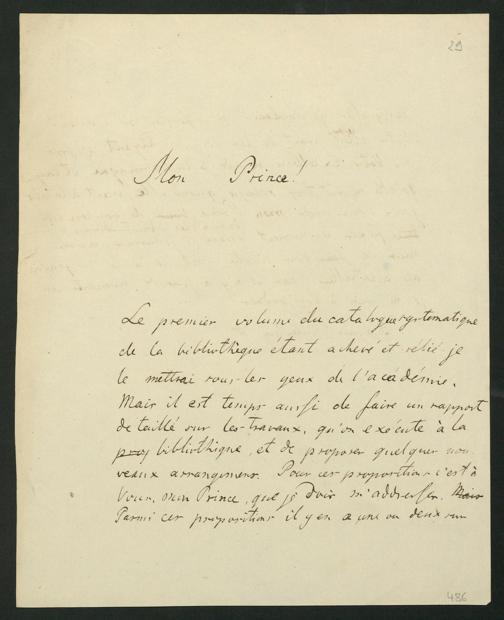 29
Mon Prince!
Le premier volume du catalogue systematique
de la bibliothèque étant achevé et relié je
le mettrai sous les yeux de l'académie.
Mais il est temps aussi de faire un rapport
detaillé sur les travaux, qu'on exécute à la
bibliothèque, et de proposer quelques nou
veaux arrangemens. Pour ces propositions c'est à
Vous, mon Prince, que je dois m'addresser. Mais
Parmi ces propositions il y en a une ou deux sur
486